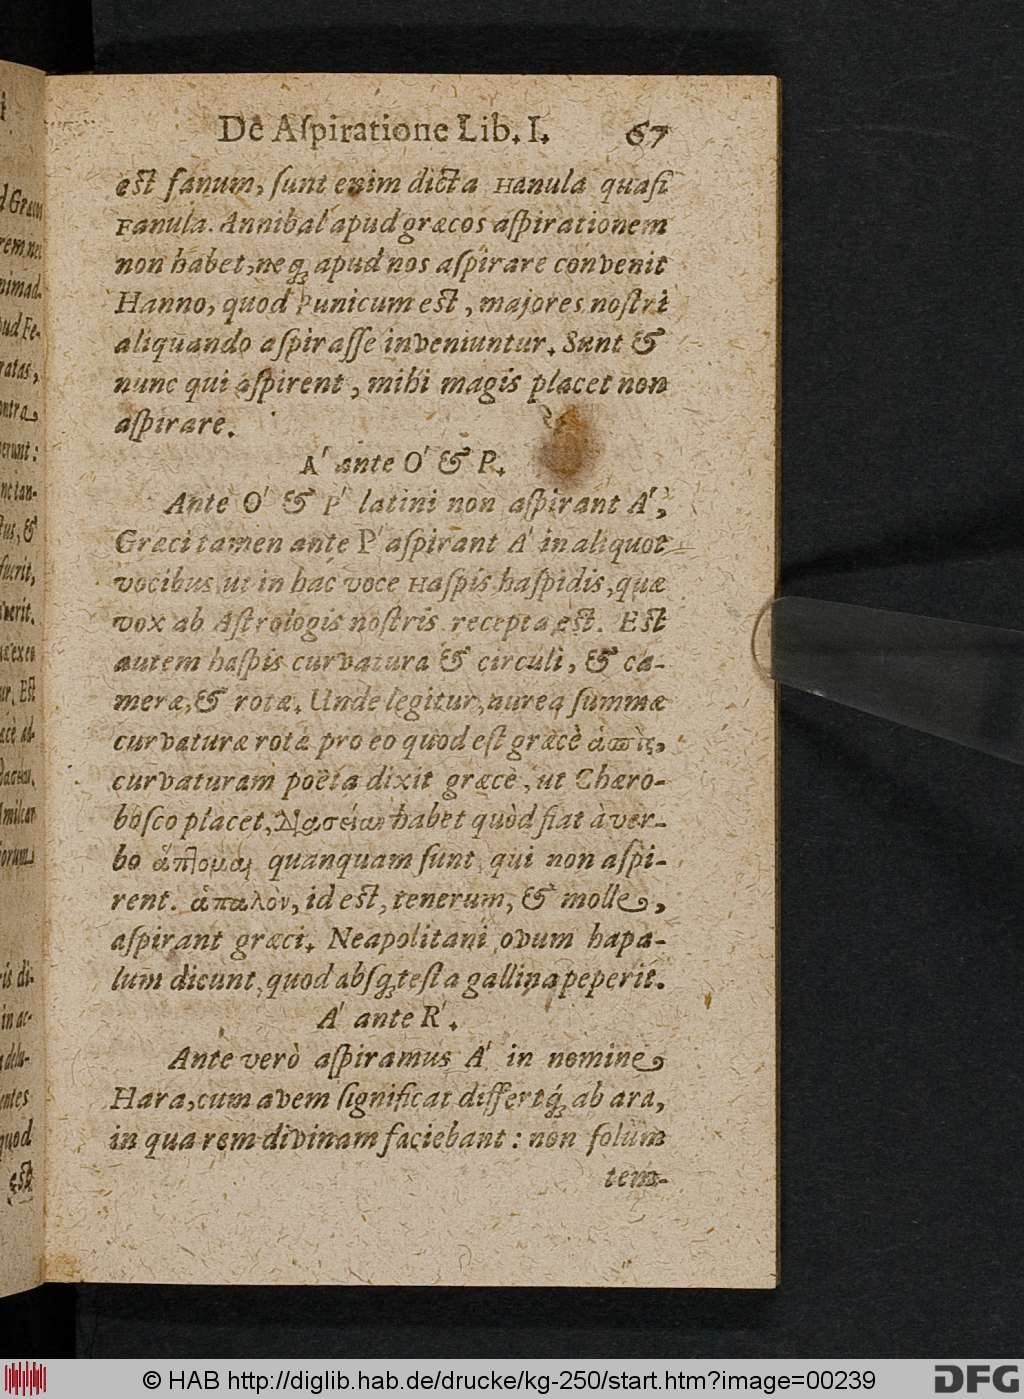 De Aſpiratione Lib. I. 67
est fanum, ſunt enim dicta Hanula quaſi
Fanula. Annibal apud græcos aſpirationem
non habet, neq; apud nos aſpirare convenit
Hanno, quod Punicum est, majores noſtri
aliquando aſpiraſſe inveniuntur. Sunt &
nunc qui aſpirent, mihi magis placet non
aſpirare.
A' ante O' & P.
Ante O' & P' latini non aſpirant A',
Græci tamen ante P' aſpirant A' in aliquot
vocibus, ut in hac voce Haſpis haſpidis, quæ
vox ab Aſtrologis noſtris recepta est. Est
autem haſpis curvatura & circuli, & ca-
meræ, & rotæ. Unde legitur, aurea ſummæ
curvaturæ rota pro eo quod eſt græcè
curvaturam poëta dixit græcè, ut Chæro-
boſco placet, habet quòd fiat à ver-
bo ἅπτομαι quanquam ſunt qui non aſpi-
rent. ἁπαλὸν, id est, tenerum, & molle,
aſpirant græci. Neapolitani ovum hapa-
lum dicunt, quod abſq; teſta gallina peperit.
A' ante R'.
Ante verò aſpiramus A' in nomine
Hara, cum avem ſignificat differtq́; ab ara,
in qua rem divinam faciebant: non ſolùm
tem-
d Græcos
rem, nec
nimad-
pud Fe-
ratas,
ontra
erunt:
nc tan-
ſtus, &
fuerit,
averit.
ur. Est
Amilcar
is di-
in ac-
quod
est
© HAB http://diglib.hab.de/drucke/kg-250/start.htm?image=00239
DFG